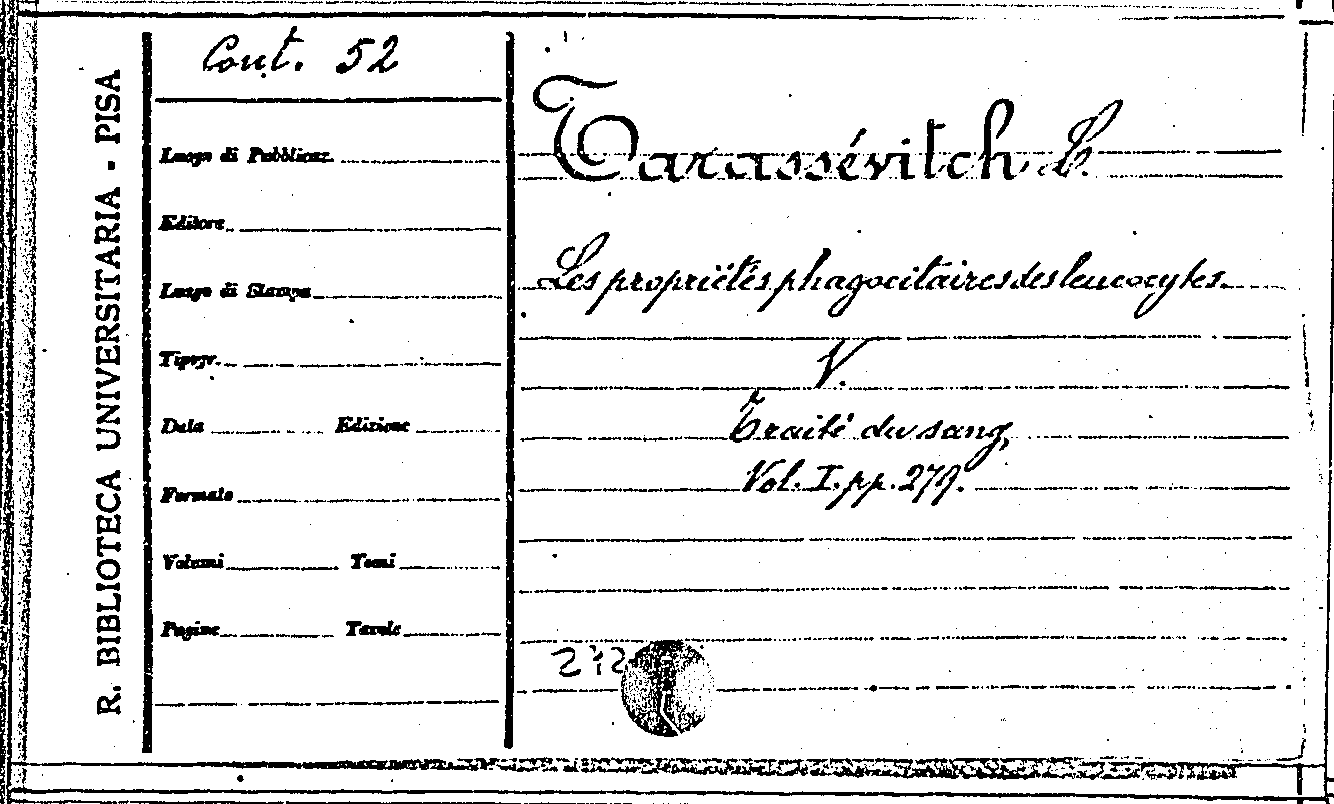 R. BIBLIOTECA UNIVERSITARIA - PISA
Cont. 52
Luogo di Pubblicaz.
Editore
Luogo di Stampa
Tipogr.
Data Edizione
Formato
Volumi Tomi
Pagine Tavole
Tarassévitch L.
Les propriétés phagocitaires des leucocytes.
V.
Traité du sang,
Vol. I. pp. 279.